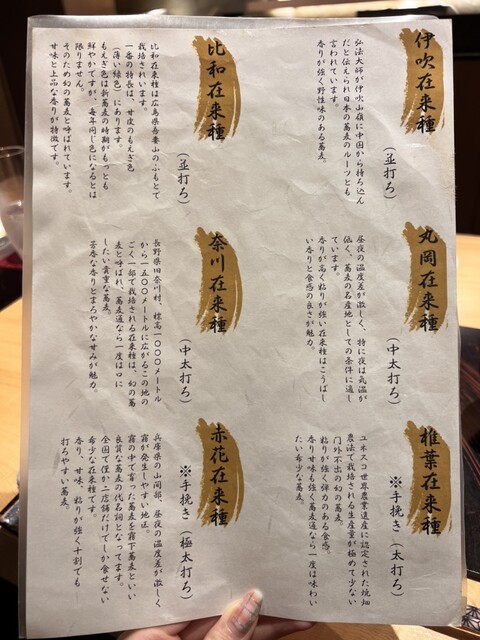 伊吹在来種
(並打ろ)
弘法大師が伊吹山嶺に中国から持ち込ん
だと伝えられ日本の蕎麦のルーツとも
言われています。
香りが強く野性味のある蕎麦。
丸岡在来種
(中太打ろ)
昼夜の温度差が激しく、特に夜は気温が
低く、蕎麦の名産地としての条件に適し
ています。
香りが高く粘りが強い在来種はこうばし
い香りと食感の良さが魅力。
椎葉在来種
※手挽き(太打ろ)
ユネスコ世界農業遺産に認定された焼畑
農法で栽培される生産量が極めて少ない
門外不出の幻の蕎麦。
粘りが強く弾力のある食感。
香り甘味も強く蕎麦通なら一度は味わい
たい希少な蕎麦。
比和在来種
(並打ろ)
比和在来種は広島県吾妻山のふもとで
栽培されています。
一番の特長は、甘皮のもえぎ色
(薄い緑色)にあります。
もえぎ色は新蕎麦の時期がもっとも
鮮やかですが、毎年同じ色になるとは
限りません。
そのため幻の蕎麦と呼ばれています。
甘味と上品な香りが特徴です。
奈川在来種
(中太打ろ)
長野県旧奈川村、標高一〇〇〇メートル
から一五〇〇メートルに広がるこの地の
ごく一部で栽培される在来種は、幻の蕎
麦と呼ばれ、蕎麦通なら一度は口に
したい貴重な蕎麦。
芳香な香りとまろやかな甘みが魅力。
赤花在来種
※手挽き(極太打ろ)
兵庫県の山間部、昼夜の温度差が激しく
霧が発生しやすい地区。
霧の中で育った蕎麦を霧下蕎麦といい
良質な蕎麦の代名詞となってます。
全国で僅か二店舗だけでしか食せない
希少な在来種です。
香り、甘味、粘りが強く十割でも
打ちやすい蕎麦。